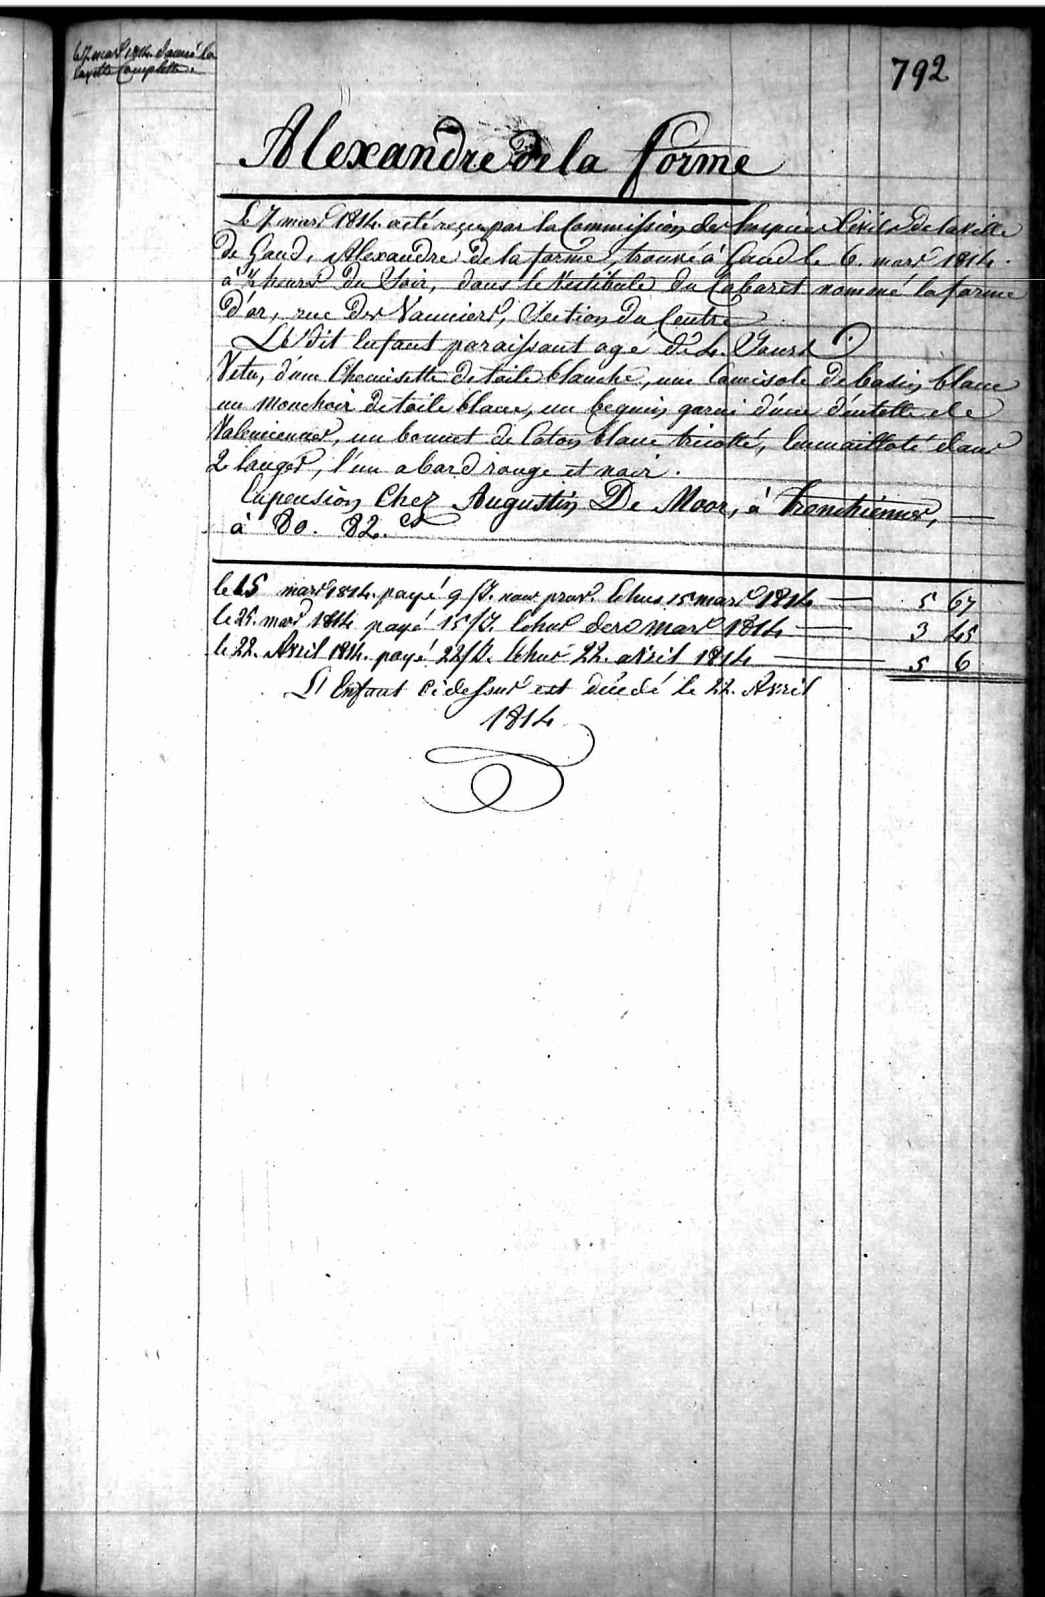 le 7. mars 1814. donné la
layette Complette.
792
Alexandre de la forme
Le 7. mars 1814. a été reçu par la Commission des hospices Civils de la ville
de Gand, Alexandre de la forme, trouvé à Gand le 6. mars 1814.
à 7 heures du Soir, dans le Vestibule du Cabaret nommé la forme
d'or, rue des Vanniers, Section du Centre
Le dit Enfant paraissant agé de 4. Jours
Vetu, d'une Chemisette de toile blanche, une Camisole de basin blanc
un mouchoir de toile blanc, un beguin garni d'une dentelle de
Valenciennes, un bonnet de Coton blanc tricotté, Emmailloté dans
2 langes, l'un a bord rouge et noir.
En pension Chez Augustin De Moor, à Tronchiennes,
à 80. 82. cs
le 15 mars 1814. payé 9 js. nour prov. Echus 15 mars 1814 5 67
le 25. mars 1814 payé 15 js. Echus mars 1814 3 45
le 22. Avril 1814. payé 22 js. Echus 22. avril 1814 5 6
L'Enfant cidessus est décédé le 22. Avril
1814